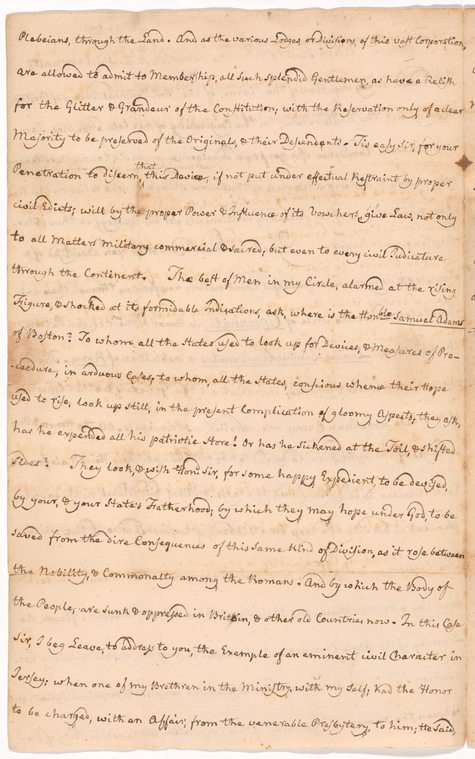 Plebeians, through the Land. And as the various Lodges, or Divisions, of this vast Corporation,
are allowed to admit to Membership, all such splendid Gentlemen, as have a Relish
for the Glitter & Grandeur of the Constitution; with the Reservation only of a clear
Majority to be preserved of the Originals, & their Dependents. Tis easy Sir, for your
that
Penetration to Discern, this Device, if not put under effectual Restraint by proper
civil Edicts; will by the proper Power & Influence of its Vouchers, give Law, not only
to all Matters military commercial & sacred; but even to every civil Judicature
through the Continent. The best of Men in my Circle, alarmed at the rising
Figure, & shocked at its formidable Indications, ask, where is the Honble Samuel Adams
of Boston? To whom, all the States used to look up for Devices, & Measures of Pro-
-ceedure, in arduous Cases, to whom, all the States, conscious whence their Hope
used to rise, look up still, in the present Complication of gloomy Aspects, they ask,
has he expended all his patriotic Store! Or has he sickened at the Toil, & shifted
Sides? They look, & wish Hon: Sir, for some happy Expedient, to be devised,
by your, & your State's Fatherhood; by which they may hope under God, to be
saved from the dire Consequences of this same Kind of Division, as it rose between
the Nobility, & Commonalty among the Romans. And by which the Body of
the People, are sunk & oppressed in Britain, & other old Countries now. In this Case
Sir, I beg Leave, to address to you, the Example of an eminent civil Character in
Jersey; when one of my Brethren in the Ministry, with my self, had the Honor
to be charged, with an Affair, from the venerable Presbytery, to him; He said,